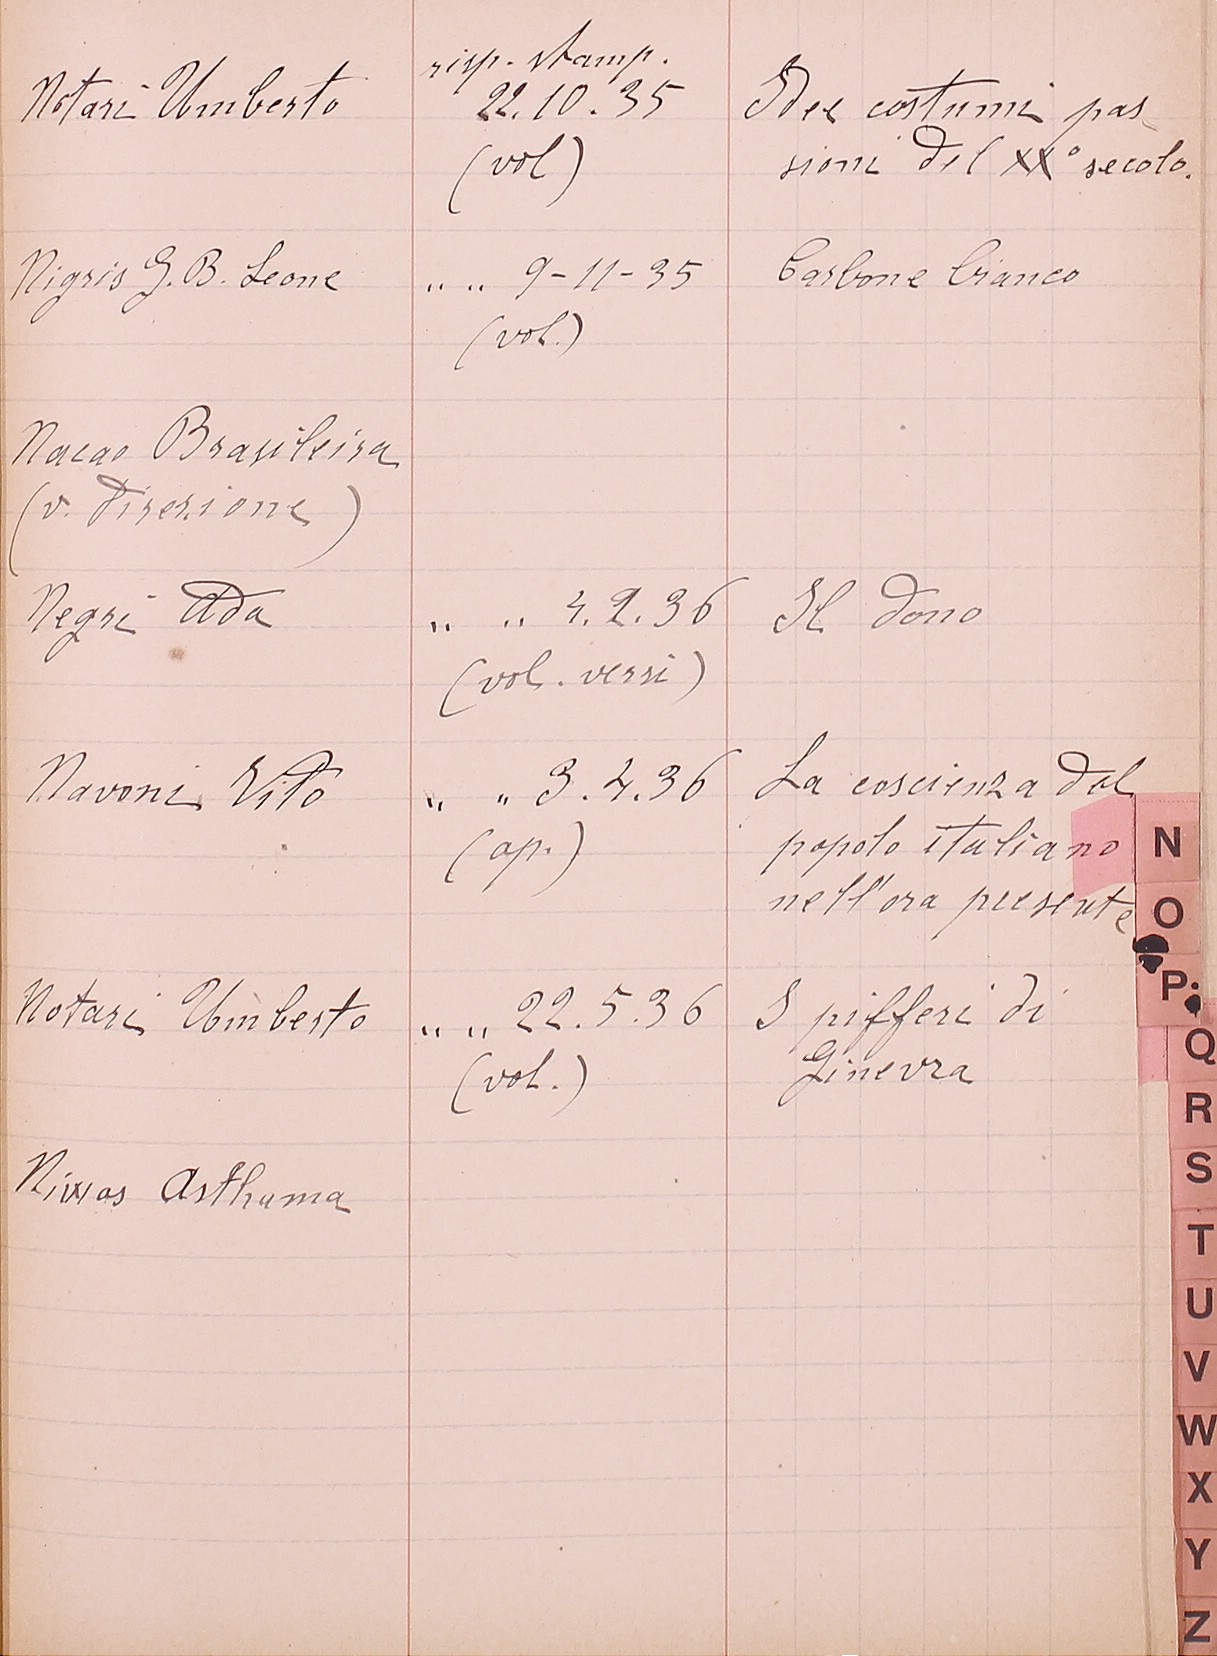 risp. stamp.
Notari Umberto 22.10.35 Idee costumi pas-
(vol) sioni del XX° secolo.
Nigris G.B. Leone " " 9-11-35 Carbone bianco
(vol.)
Nacao Brasileira
(v. Direzione)
Negri Ada " " 4.2.36 Il dono
(vol. versi)
Navoni Vito " " 3.4.36 La coscienza dal
(op.) popolo italiano
nell'ora presente
Notari Umberto " " 22.5.36 I pifferi di
(vol.) Ginevra
Asthuma
N
O
P
Q
R
S
T
U
V
W
X
Y
Z